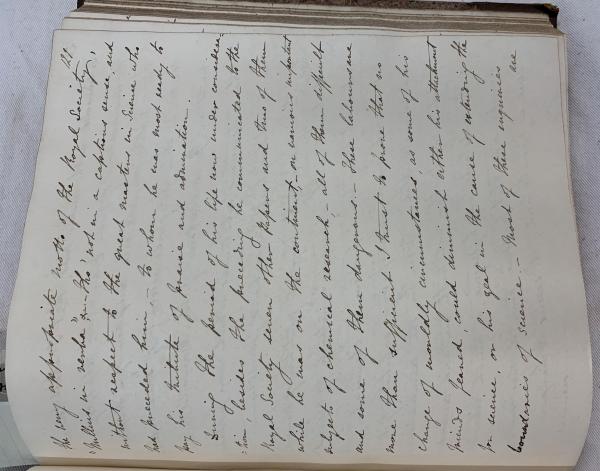 the very appropriate motto of the Royal Society,
"Nullius in verba" tho' not in a captious sense, and
without respect to the great masters in science who
had preceded him – to whom he was most ready to
pay his tribute of praise and admiration.
During the period of his life now under considera-
-tion, besides the preceding he communicated to the
Royal Society seven other papers and two of them
while he was on the continent, – on various important
subjects of chemical research, – all of them difficult
and some of them dangerous. – These labours are
more than sufficient I trust to prove that no
change of worldly circumstances, as some of his
friends feared, could diminish either his attachment
for science, or his zeal in the cause of extending the
boundaries of science. – Most of these enquiries are